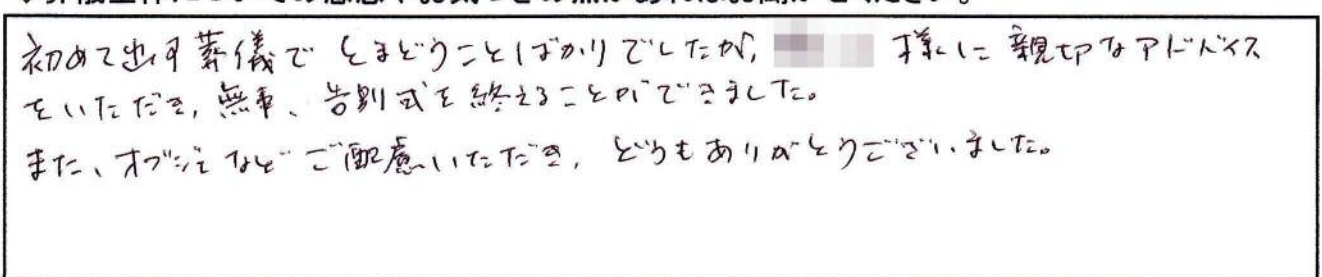 初めて出す葬儀でとまどうことばかりでしたが, 様に親切なアドバイス
をいただき, 無事、告別式を終えることができました。
また、オブジェなどご配慮いただき, どうもありがとうございました。